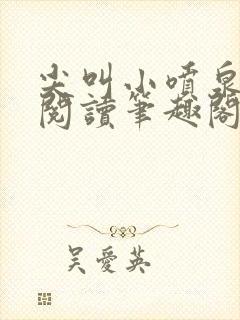 尖叫小噴泉
閱讀筆趣閣
吳愛英